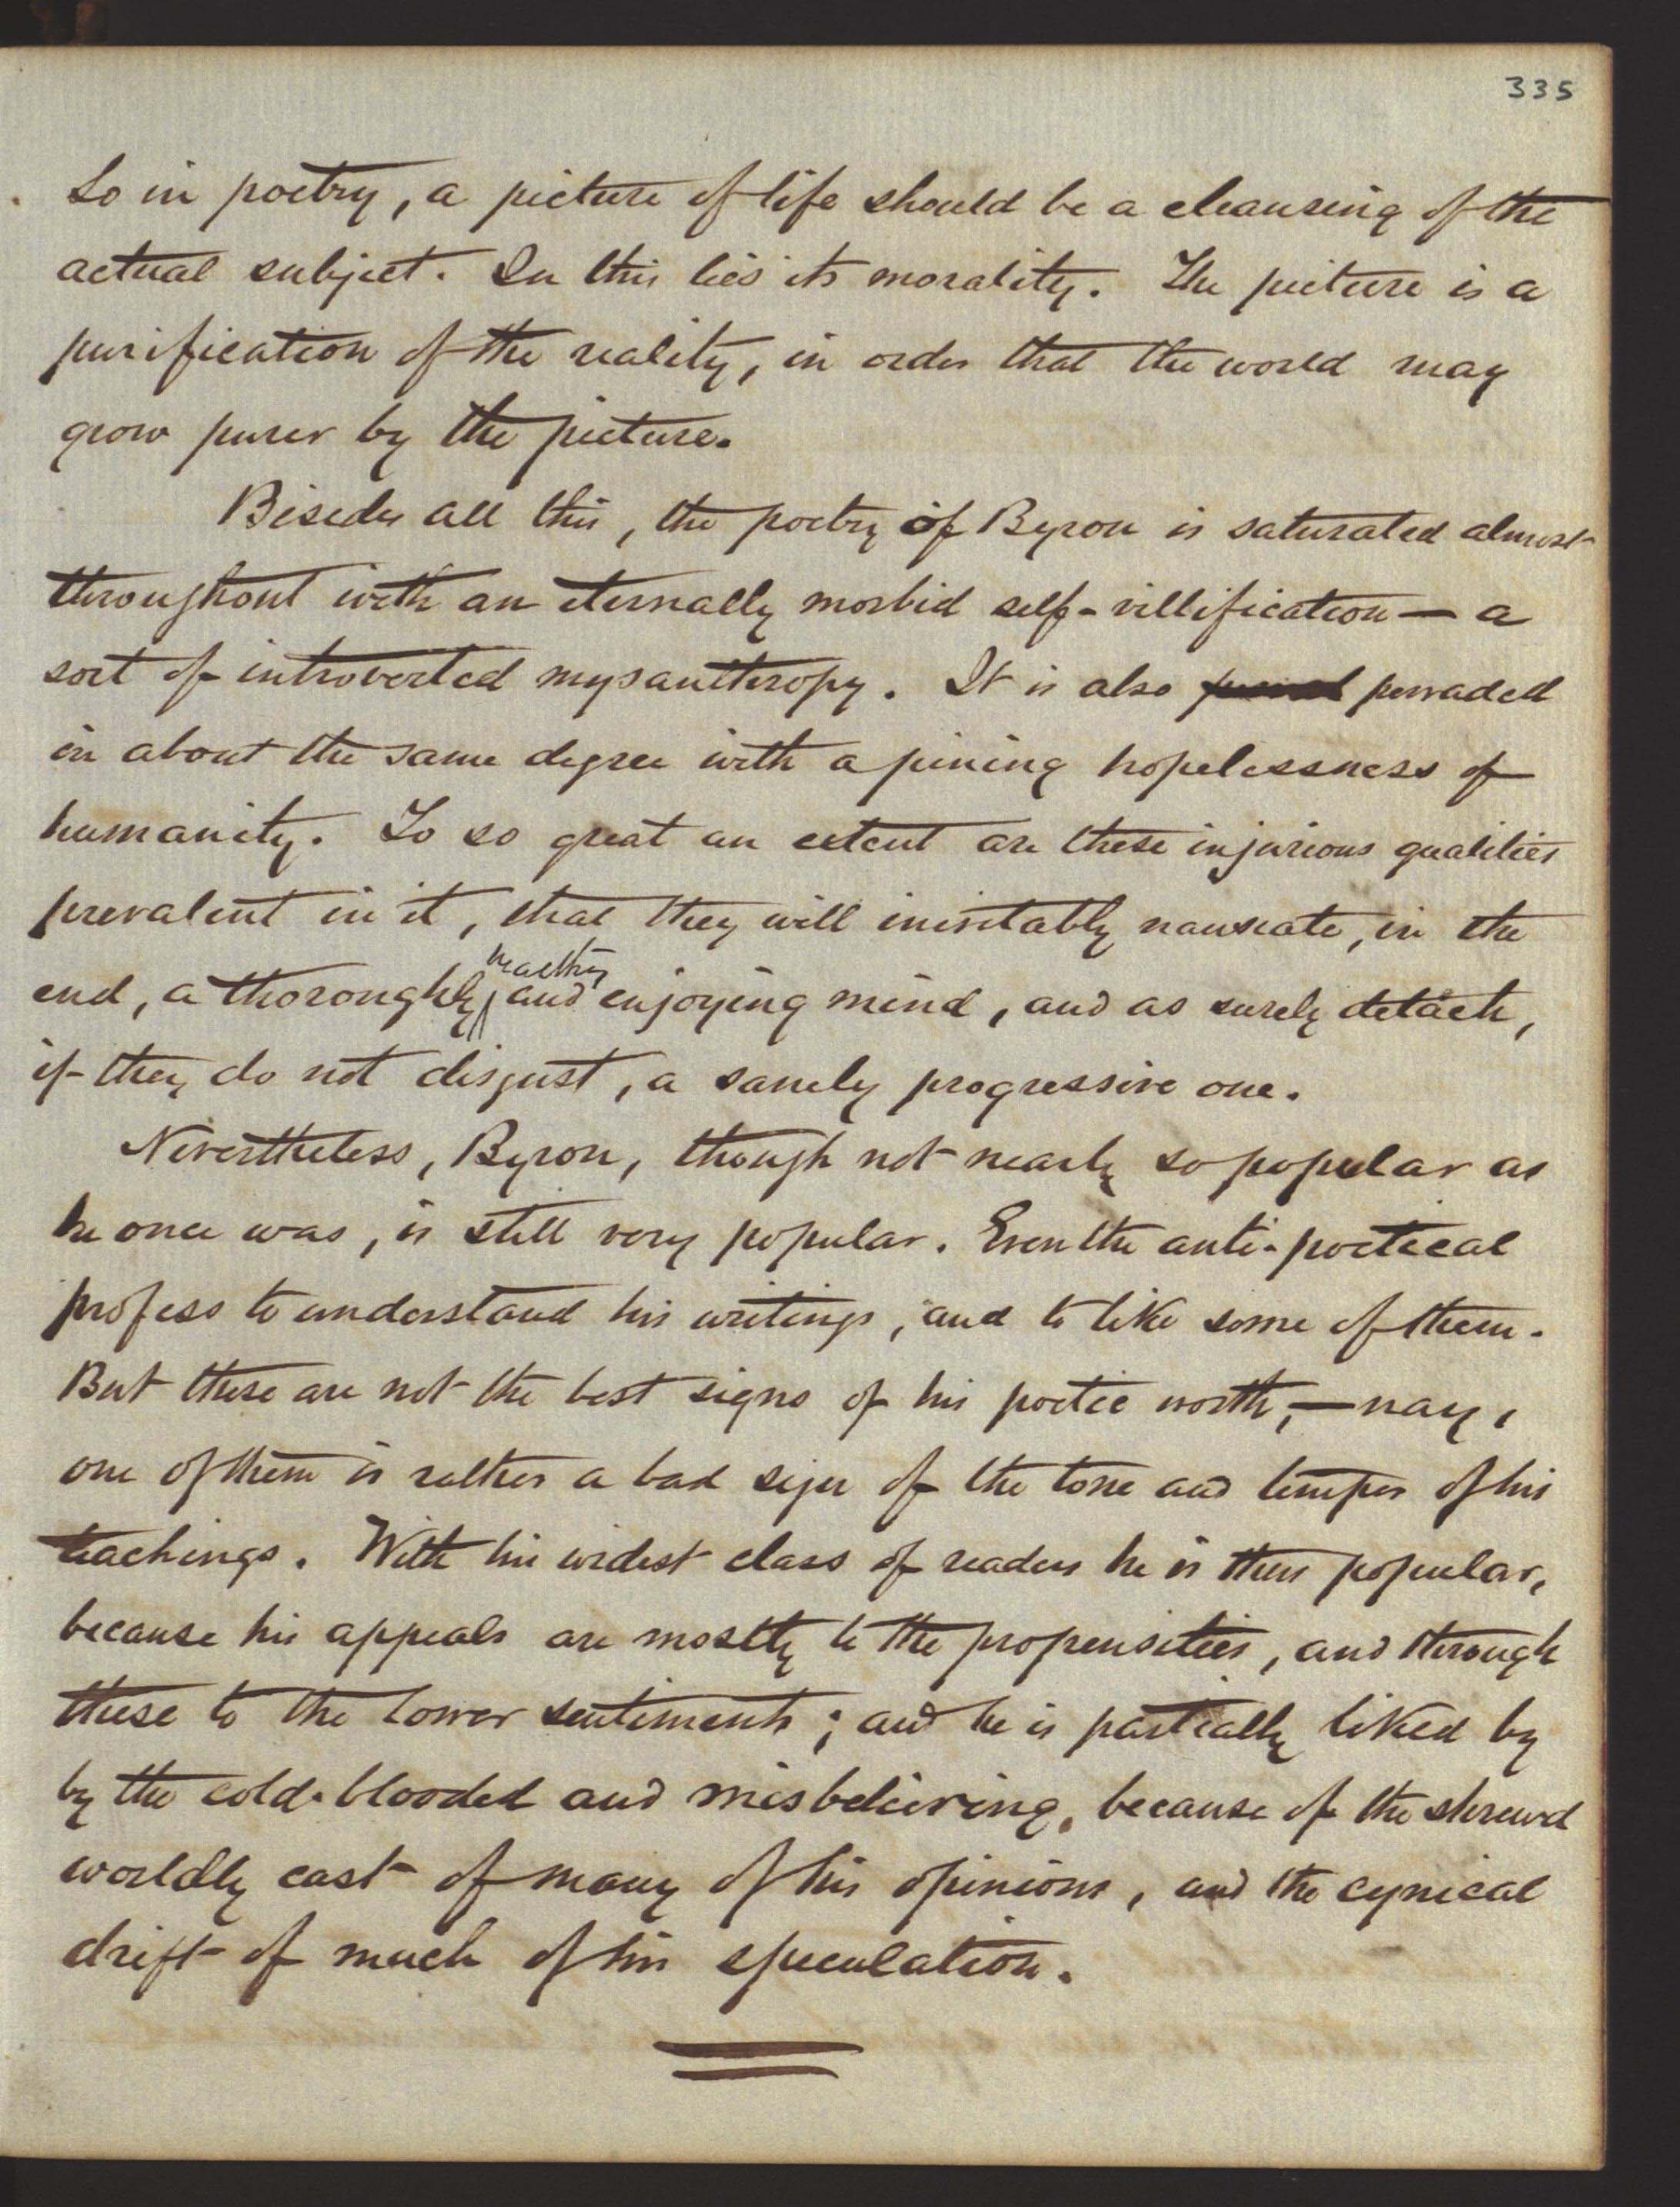 335
So in poetry, a picture of life should be a cleansing of the
actual subject. In this lies its morality. The picture is a
purification of the reality, in order that the world may
grow purer by the picture.
Besides all this, the poetry of Byron is saturated almost
throughout with an eternally morbid self-villification — a
sort of introverted mysanthropy. It is also pervaded
in about the same degree with a pining hopelessness of
humanity. To so great an extent are these injurious qualities
prevalent in it, that they will inevitably nauseate, in the
healthy
end, a thoroughly and enjoying mind, and as surely detach,
if they do not disgust, a sanely progressive one.
Nevertheless, Byron, though not nearly so popular as
he once was, is still very popular. Even the anti-poetical
profess to understand his writings, and to like some of them.
But these are not the best signs of his poetic worth, — nay,
one of them is rather a bad sign of the tone and temper of his
teachings. With his widest class of readers he is thus popular,
because his appeals are mostly to the propensities, and through
these to the lower sentiments; and he is partially liked by
by the cold-blooded and misbelieving, because of the shrewd
worldly cast of many of his opinions, and the cynical
drift of much of his speculation.